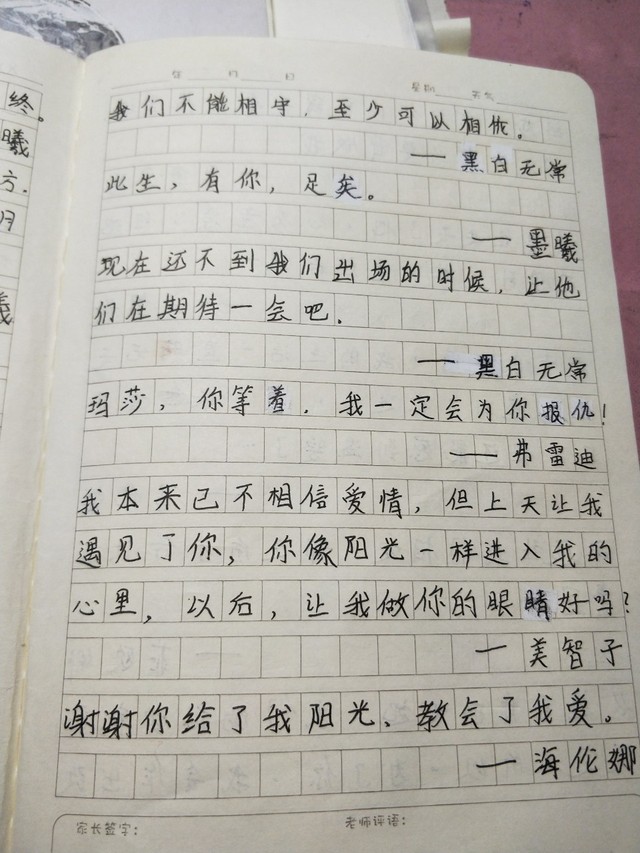 终。
曦
方.
月
年 月 日 星期 天气
我们不能相守，至少可以相依。
——黑白无常
此生，有你，足矣。
——墨曦
现在还不到我们出场的时候，让他
们在期待一会吧.
——黑白无常
玛莎，你等着.我一定会为你报仇!
——弗雷迪
我本来已不相信爱情，但上天让我
遇见了你，你像阳光一样进入我的
心里，以后，让我做你的眼睛好吗?
—美智子
谢谢你给了我阳光、教会了我爱。
—海伦娜
家长签字: 老师评语: